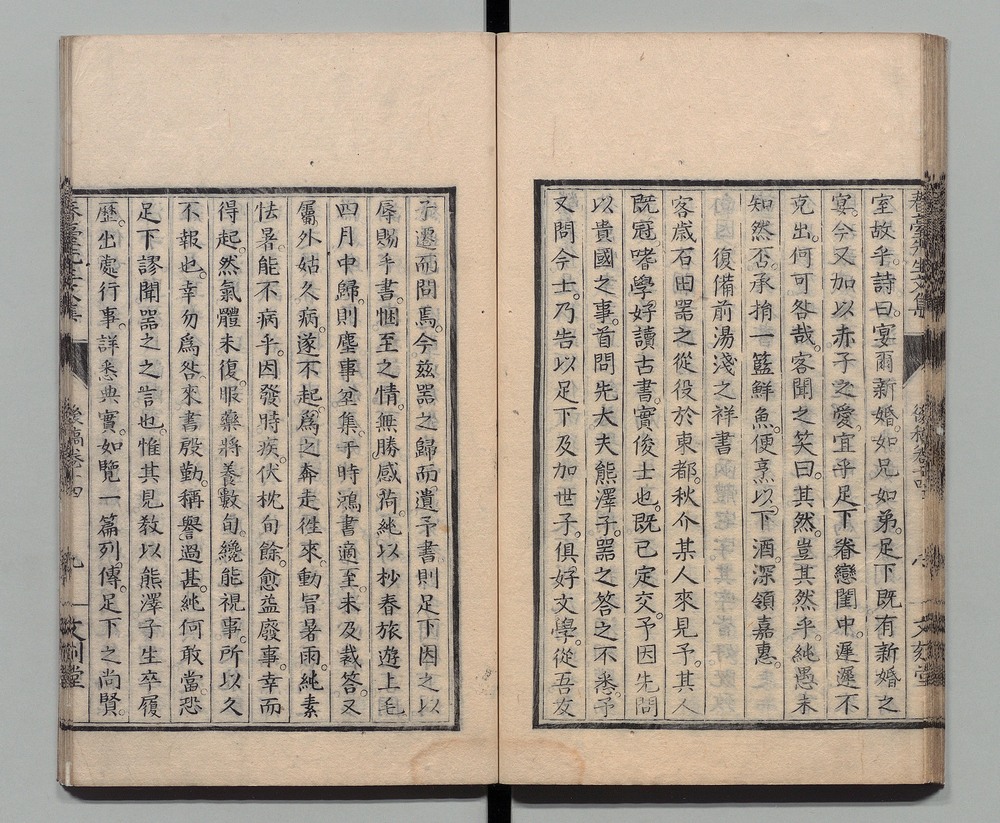 室故乎。詩曰。宴爾新婚。如兄如弟。足下既有新婚之
宴。今又加以赤子之愛。宜乎足下眷戀閨中。遲遲不
克出。何可咎哉。客聞之笑曰。其然。豈其然乎。純愚未
知然否。承捎一籃鮮魚。便烹以下酒。深領嘉惠。
復備前湯淺之祥書
客歲石田器之從役於東都。秋介其人來見予。其人
既冠。嗜學。好讀古書。實俊士也。既已定交。予因先問
以貴國之事。首問先大夫熊澤子。器之答之不悉。予
又問今士。乃告以足下及加世子。俱好文學。從吾友
春臺先生文集 後稿卷十四 八 文刻堂
子遷而問焉。今茲器之歸而遺予書。則足下因之以
辱賜乎書。悃至之情。無勝感荷。純以杪春旅遊上毛。
四月中歸。則塵事坌集。于時鴻書適至。未及裁答。又
屬外姑久病。遂不起。爲之奔走徃來。動冒暑雨。純素
怯暑。能不病乎。因發時疾。伏枕旬餘。愈益廢事。幸而
得起。然氣體未復。服藥將養數旬。纔能視事。所以久
不報也。幸勿爲咎。來書殷勤。稱譽過甚。純何敢當。恐
足下謬聞器之之言也。惟其見教以熊澤子生卒履
歷。出處行事。詳悉典實。如覽一篇列傳。足下之尚賢。
春臺先生文集 後稿卷十四 九 文刻堂